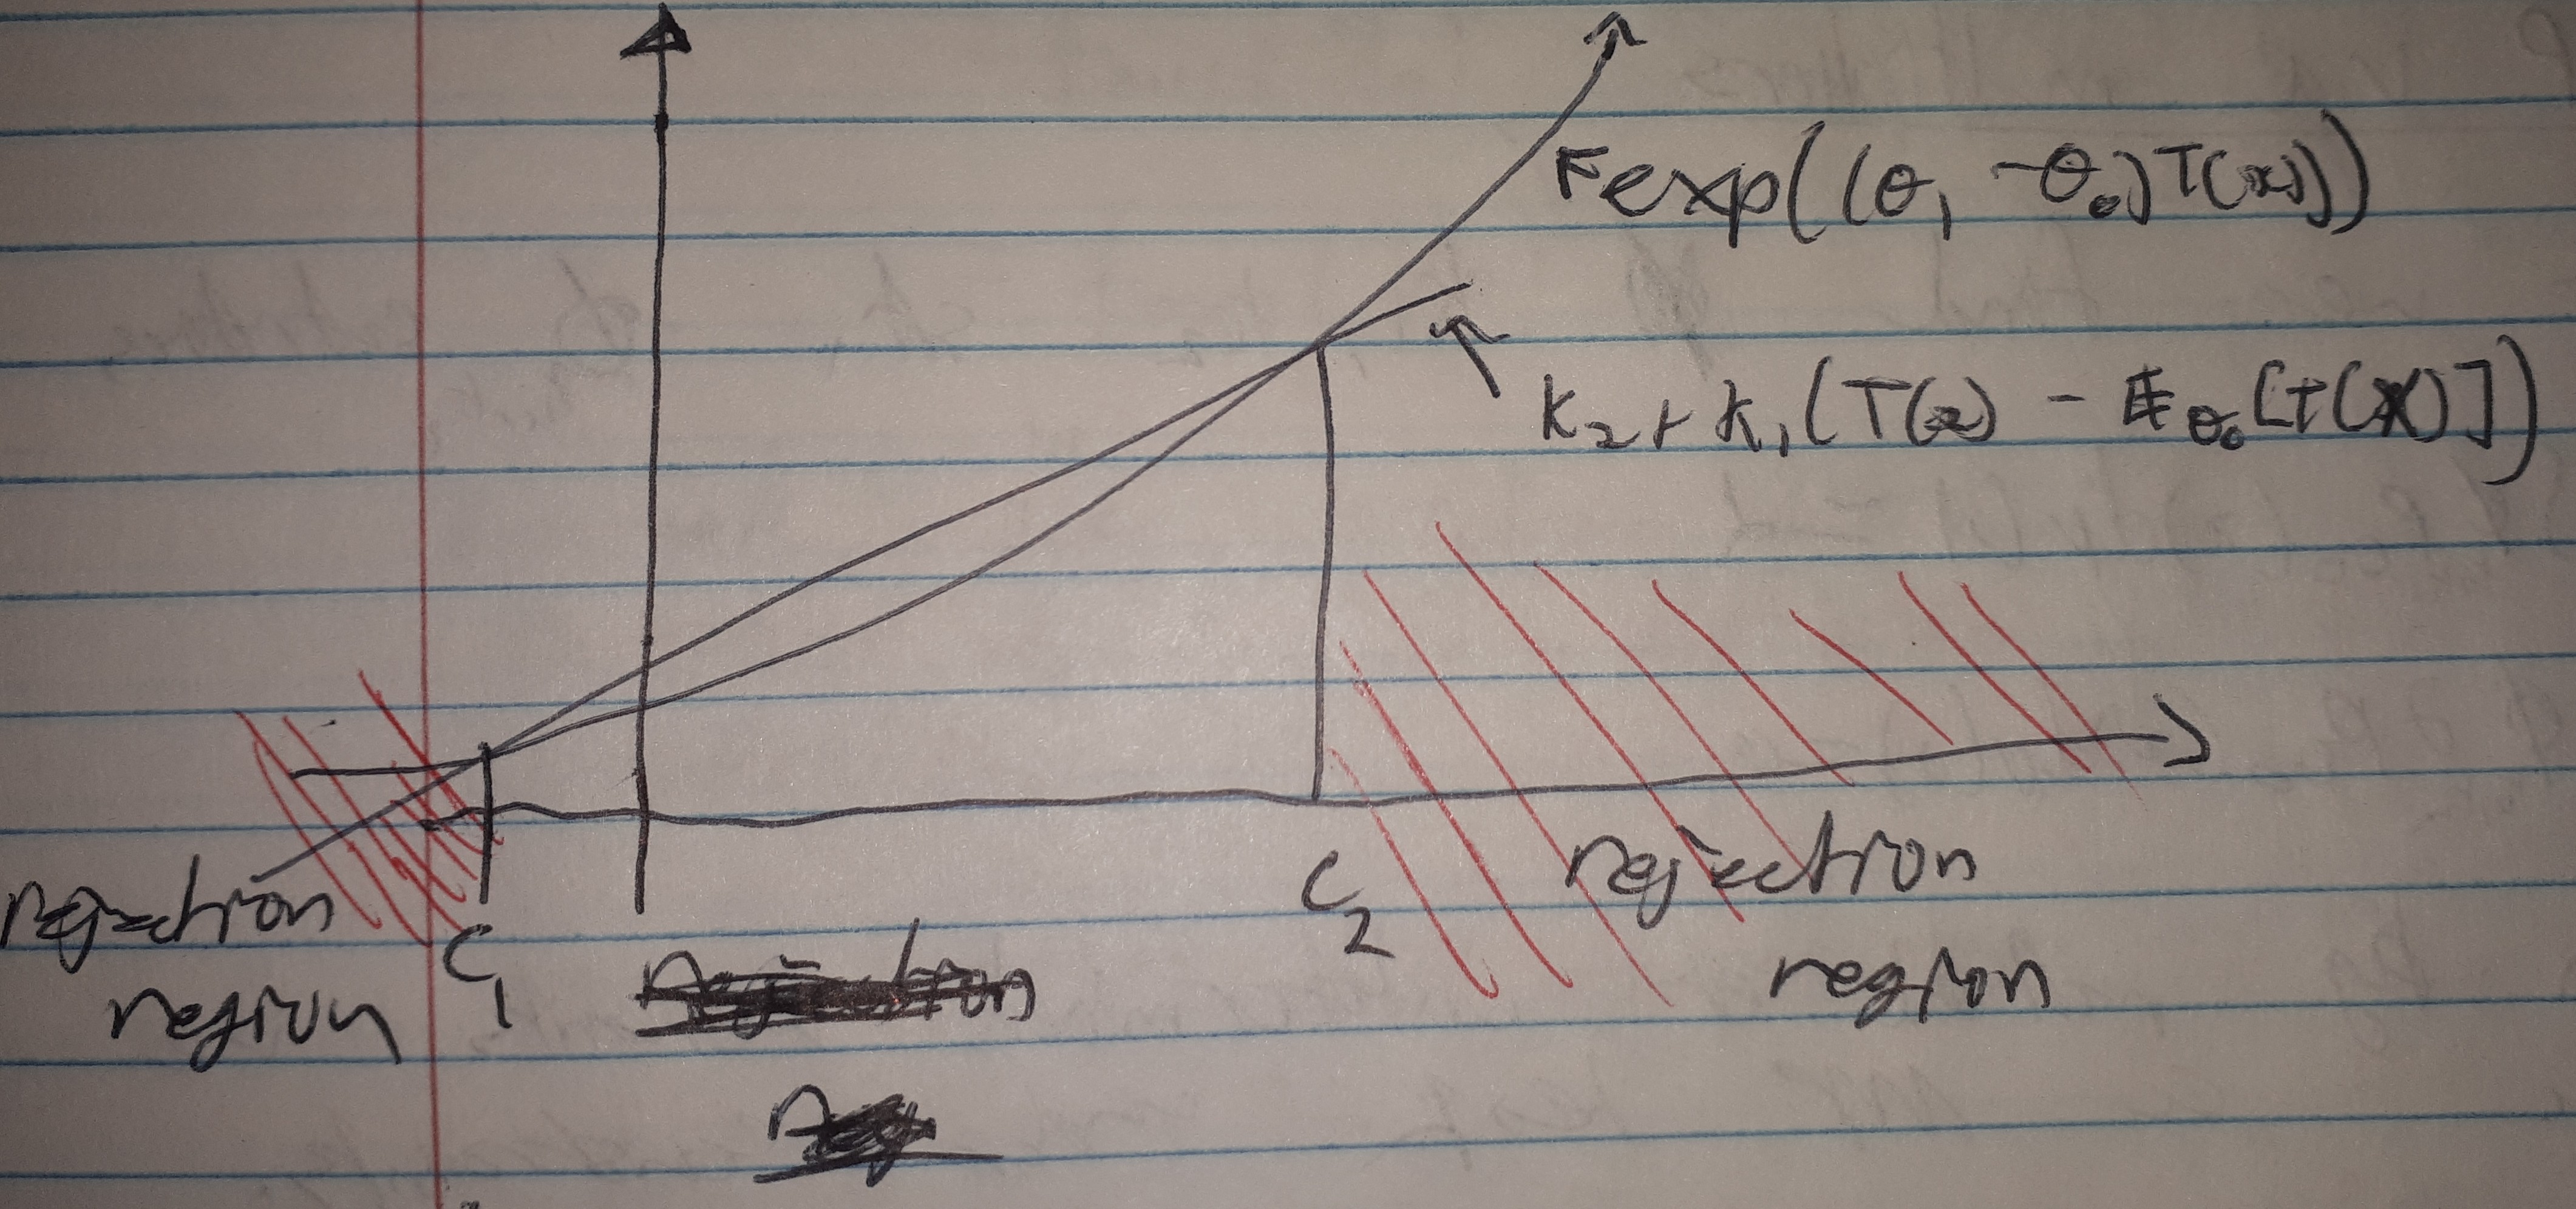 Fexp((θ₁ - θ₀)T(x))
k₂ + k₁(T(x) - E_θ₀[T(X)])
rejection
region
C₁
C₂
rejection
region